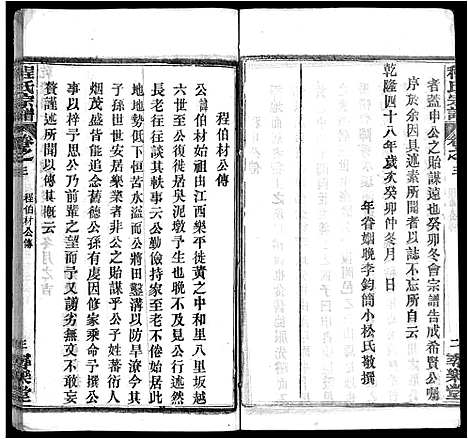 程氏宗譜
卷之三
二 秀樂堂
者蓋申公之貽謀遠也癸卯冬會宗譜告成希賢公囑
序於余因具述素所聞者以誌不忘所自云
乾隆四十八年歲次癸卯仲冬月 日
年眷姻晚李鈞簡小松氏敬撰
程伯材公傳
公諱伯材始祖由江西樂平徙黃之中和里八里坂越
六世至公復徙居吳泥墩予生也晚不及見公行述然
長老往往談其軼事云公勤儉持家至老不倦始居此
地地勢低下恒苦水溢而公將田鑿溝以防旱潦今其
子孫世世安居樂業者非公之貽謀乎公子姓蕃衍人
烟茂盛皆能追念舊德公孫有虔因修家乘命予撰公
事以梓予思公乃前輩之望而予又譾劣無文不敢敢妄
贅謹述所聞以傳其概云
程氏宗譜
卷之三
程伯材公傳
三 秀樂堂